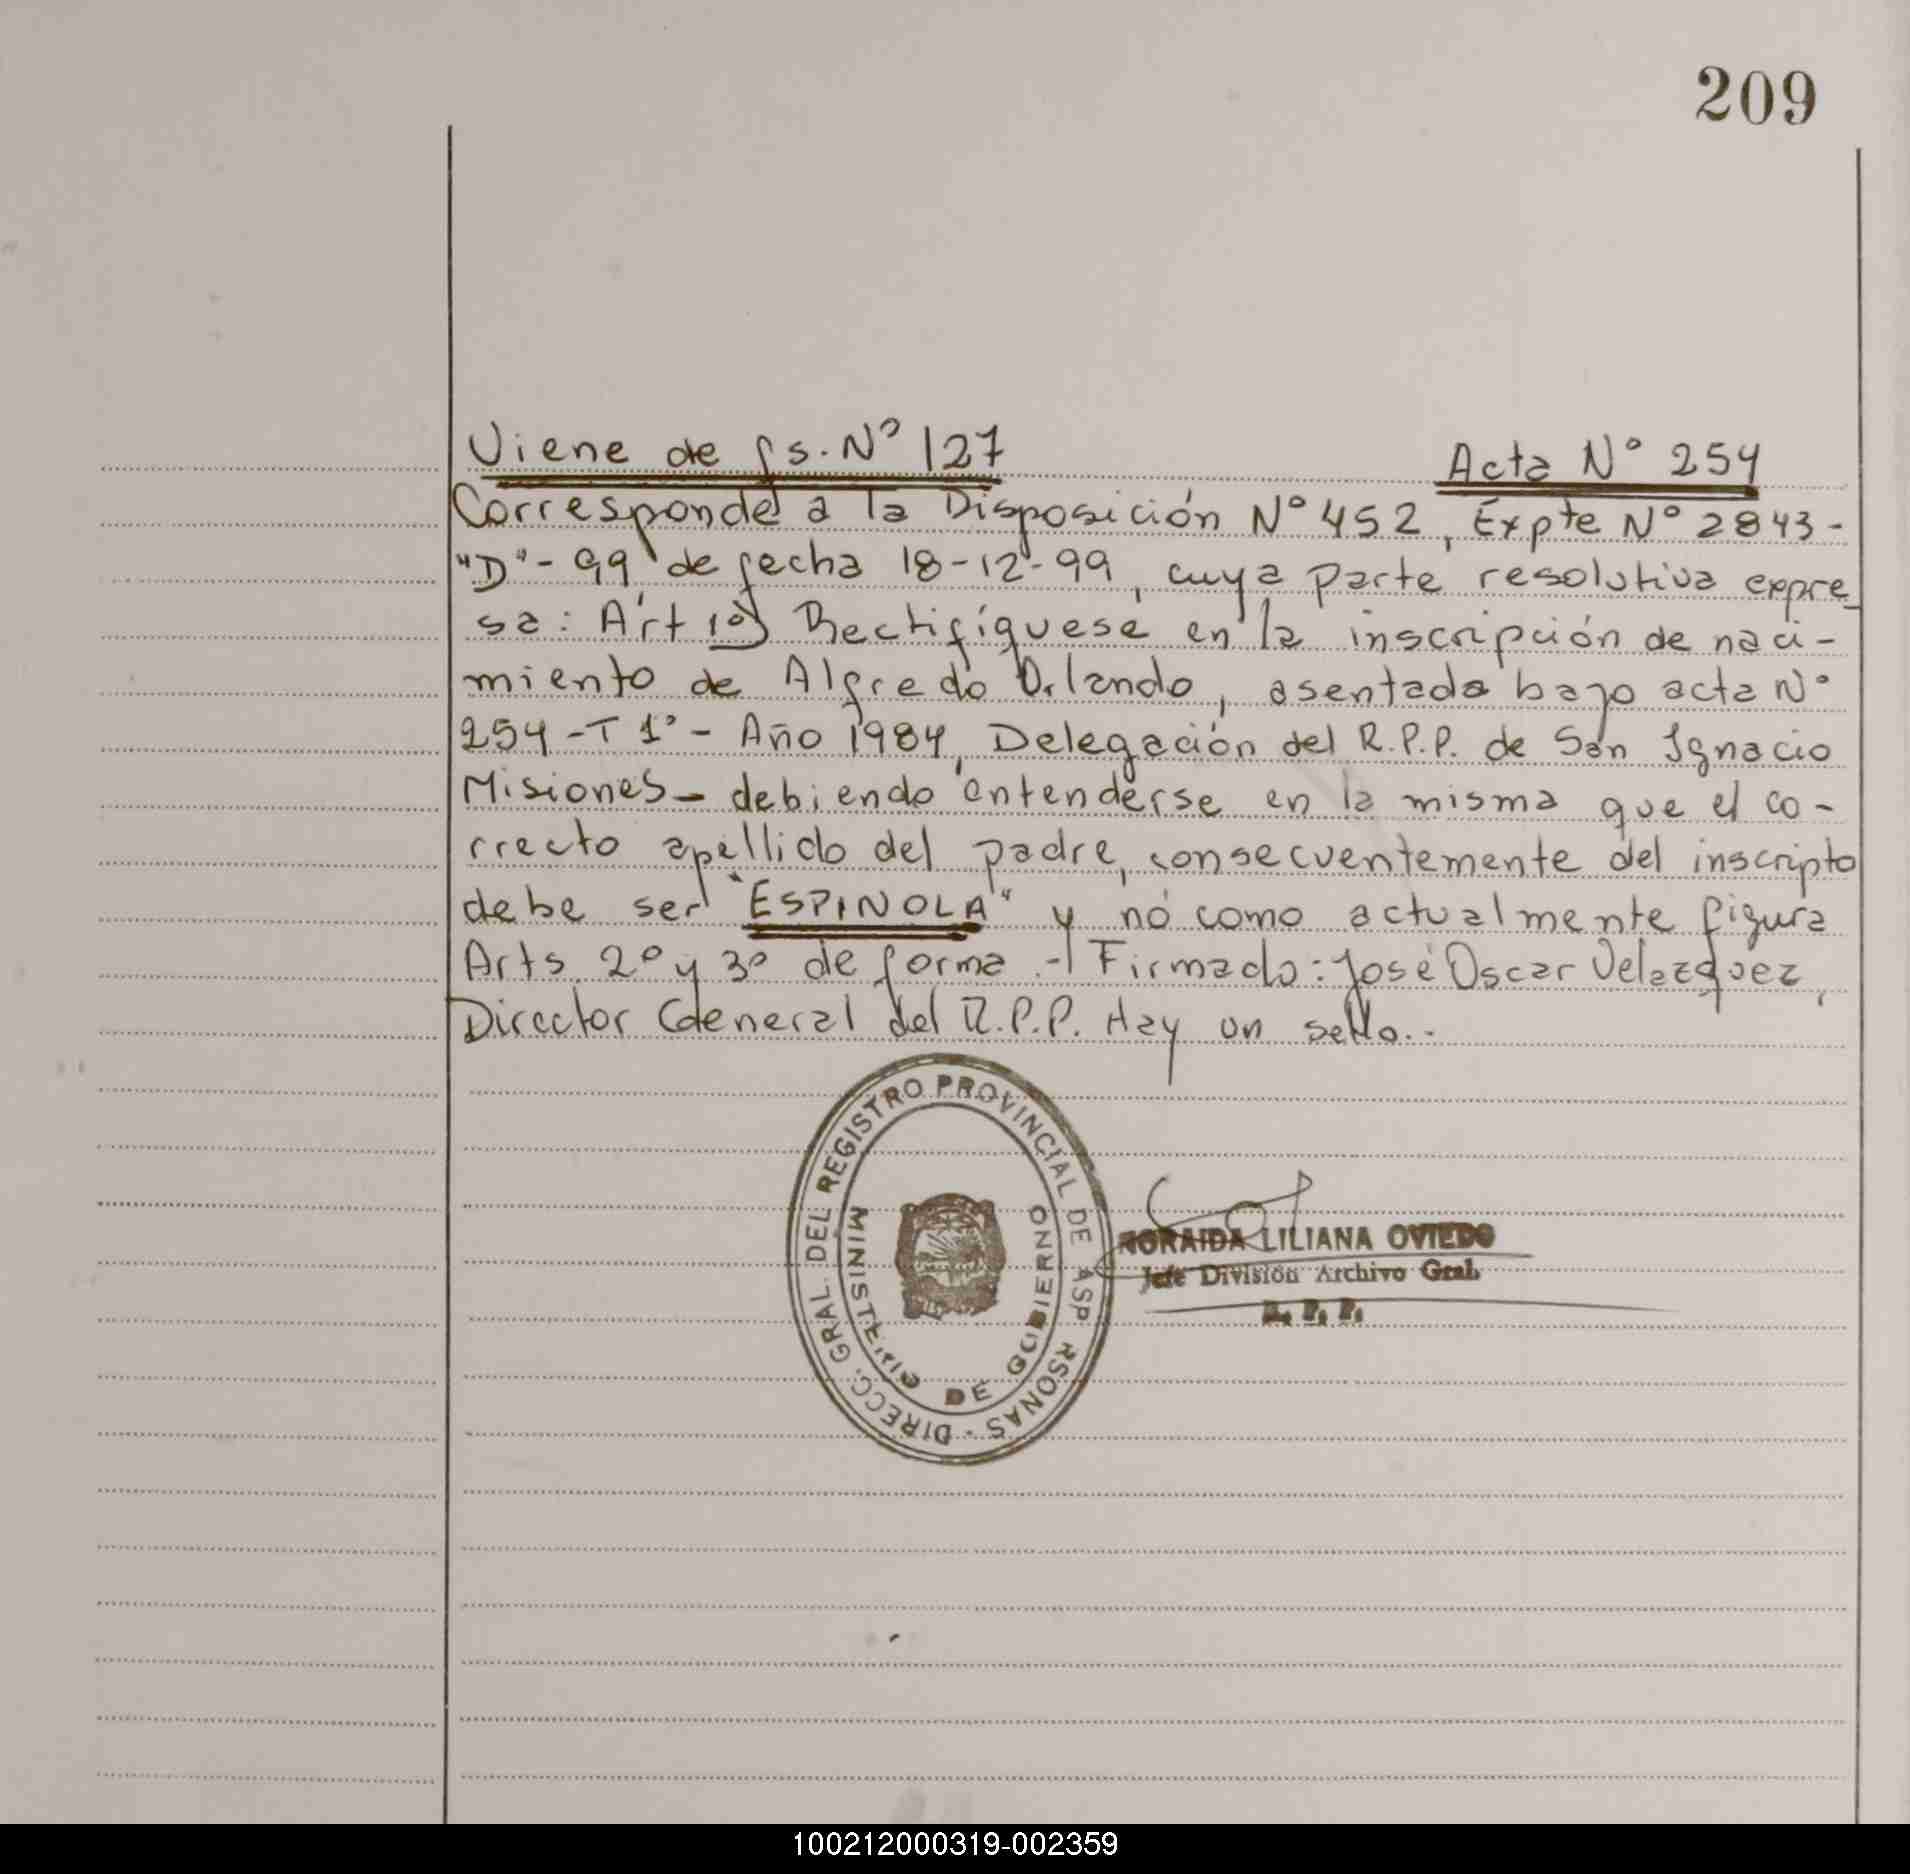 209
Viene de fs. Nº 127
Acta Nº 254
Corresponde a la Disposición Nº 452, Expte Nº 2843-
"D"- 99 de fecha 18-12-99, cuya parte resolutiva expre_
sa: Art 1º) Rectifíquese en la inscripción de naci-
miento de Alfredo Orlando, asentada bajo acta Nº
254-T 1º- Año 1984, Delegación del R.P.P. de San Ignacio
Misiones- debiendo entenderse en la misma que el co-
rrecto apellido del padre, consecuentemente del inscripto
debe ser "ESPINOLA" y nó como actualmente figura
Arts. 2º y 3º de forma.-/ Firmado: José Oscar Velazquez,
Director General del R.P.P. Hay un sello.-
DIRECC. GRAL. DEL REGISTRO PROVINCIAL DE ASP RSONAS -
MINISTERIO DE GOBIERNO
NORAIDA LILIANA OVIEDO
Jefe División Archivo Gral.
R. P. P.
100212000319-002359